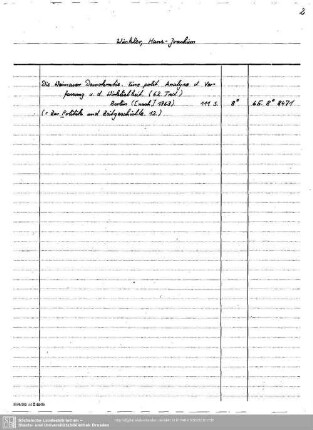 2
Winkler, Hans-Joachim
Die Weimarer Demokratie. Eine polit. Analyse d. Ver-
fassung u. d. Wirklichkeit. (62. Tsd.)
Berlin 1963. 111 S. 8° 65. 8° 8471
(= Zur Politik und Zeitgeschichte. 12.)
Sächsische Landesbibliothek -
Staats- und Universitätsbibliothek Dresden